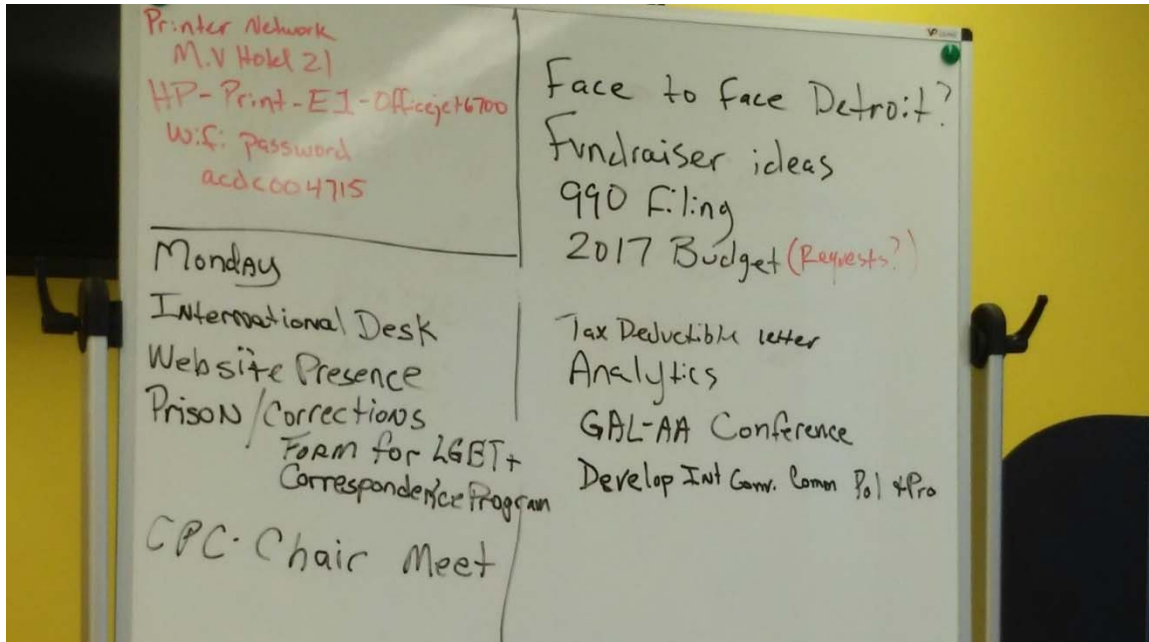 Printer Network
M.V Hotel 21
HP-Print-E1-Officejet6700
Wifi password
acdc004715
Monday
International Desk
Website Presence
Prison/Corrections
Form for LGBT+
Correspondence Program
CPC. Chair Meet
Face to Face Detroit?
Fundraiser ideas
990 Filing
2017 Budget (Requests?)
Tax Deductible letter
Analytics
GAL-AA Conference
Develop Int Conv. Comm Pol & Pro